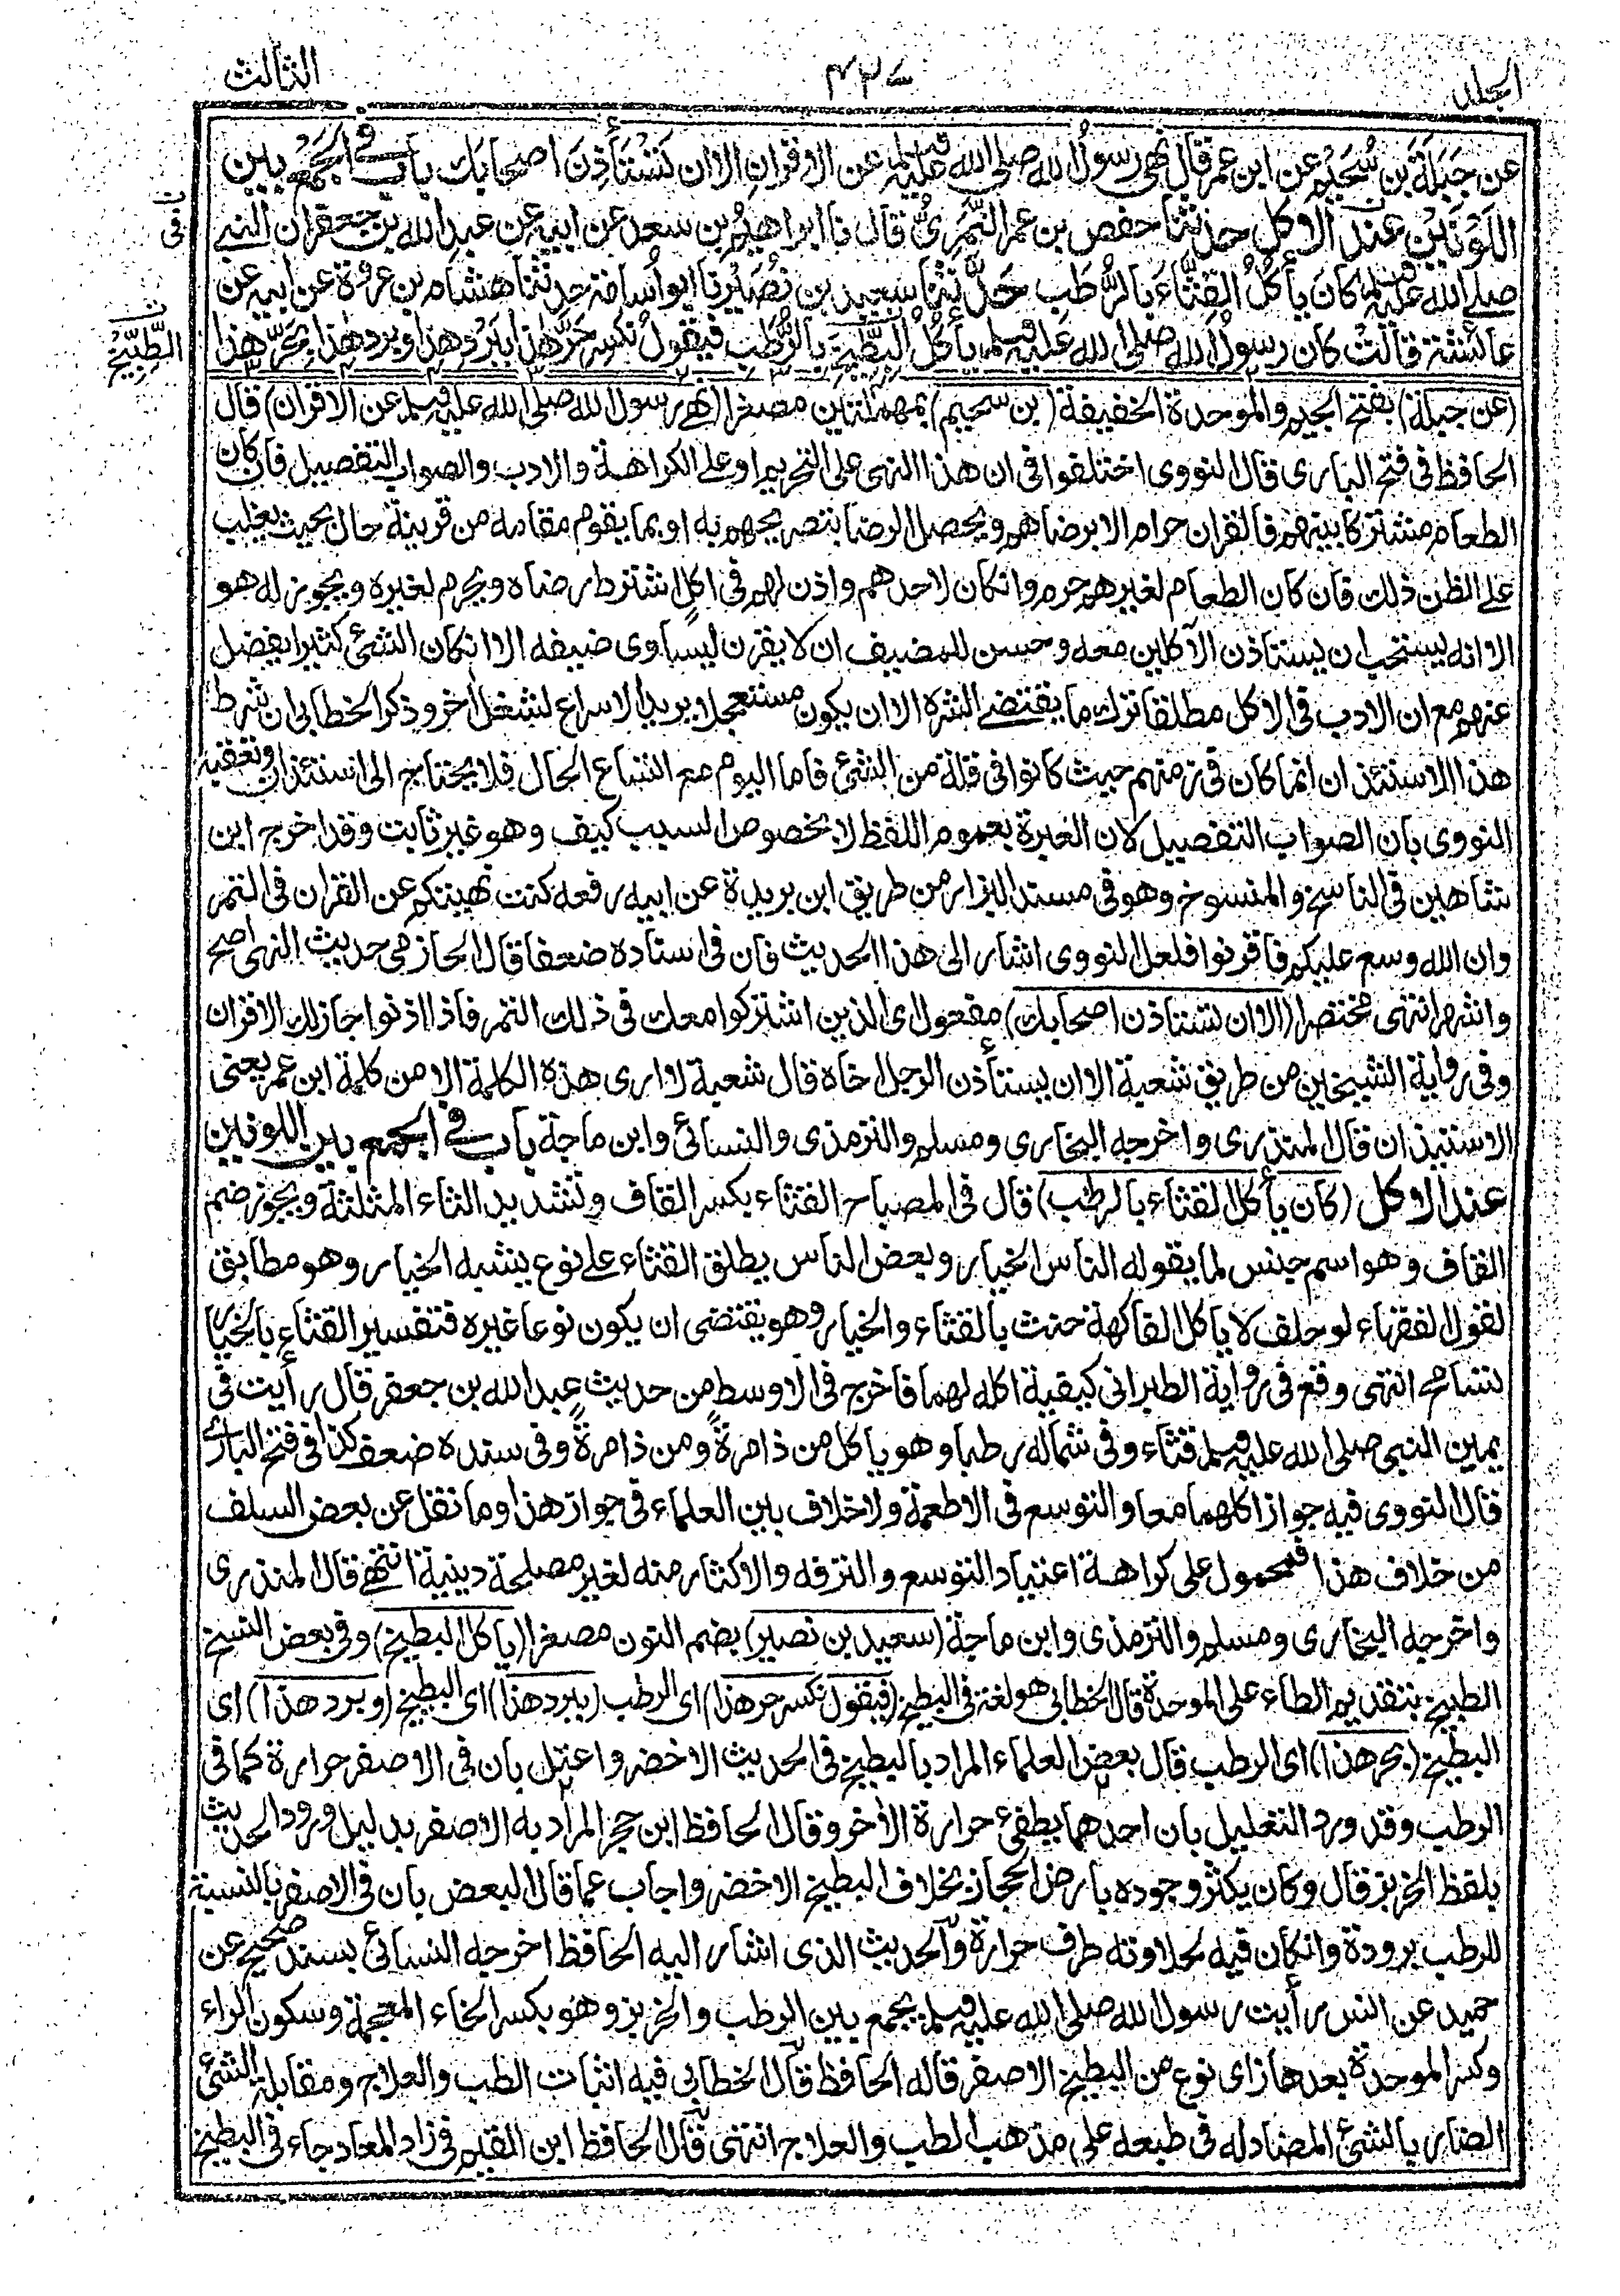 المجلد
٤٢٧
الثالث
عن جَبَلَةَ بن سُحَيْمٍ عن ابن عمر قال نهى رسولُ الله صلى الله عليه وسلم عن الاقران الا ان تَسْتَأْذِنَ اصحابك باب في الجَمْع بين
اللَوْنَيْنِ عند الاكل حدثنا حفص بن عمر النَّمَرِيُّ قال نا ابراهيمُ بن سعد عن ابيه عن عبد الله بن جعفر ان النبي
صلى الله عليه وسلم كان يأكُلُ القِثَّاءَ بالرُّطَبِ حدَّثنا سعيد بن نُصَيْرٍ نا ابو اُسامة حدثنا هشام بن عروة عن ابيه عن
عائشة قالت كان رسولُ الله صلى الله عليه وسلم يأكُلُ البِطِّيخَ بالرُّطَبِ فيقولُ نكسِر حَرَّ هذا ببَرْدِ هذا وبرد هذا بحَرِّ هذا
ن
في
ن
الطِّبِّيخَ
(عن جبلة) بفتح الجيم والموحدة الخفيفة (بن سحيم) بمهملتين مصغرا (نهى رسول الله صلى الله عليه وسلم عن الاقران) قال
الحافظ في فتح البارى قال النووى اختلفوا في ان هذا النهى على التحريم او على الكراهة والادب والصواب التفصيل فان كان
الطعام مشتركا بينهم فالقران حرام الا برضاهم ويحصل الرضا بتصريحهم به او بما يقوم مقامه من قرينة حال بحيث يغلب
على الظن ذلك فان كان الطعام لغيرهم حرم وانكان لاحدهم واذن لهم في اكل اشترط رضاه ويحرم لغيره ويجوز له هو
الا انه يستحب ان يستاذن الآكلين معه وحسن للمضيف ان لا يقرن ليساوى ضيفه الا انكان الشئ كثيرا يفضل
عنهم مع ان الادب في الاكل مطلقا ترك ما يقتضى الشره الا ان يكون مستعجلا يريد الاسراع لشغل أخر وذكر الخطابى ان شرط
هذا الاستئذان انما كان في زمنهم حيث كانوا في قلة من الشئ فاما اليوم مع اتساع الحال فلا يحتاج الى استئذان وتعقبه
النووى بان الصواب التفصيل لان العبرة بعموم اللفظ لا بخصوص السبب كيف وهو غير ثابت وقد اخرج ابن
شاهين في الناسخ والمنسوخ وهو في مسند البزار من طريق ابن بريدة عن ابيه رفعه كنت نهيتكم عن القران في التمر
وان الله وسع عليكم فاقرنوا فلعل النووى اشار الى هذا الحديث فان في اسناده ضعفا قال الحازمى حديث النهى اصح
واشهر انتهى مختصرا (الا ان تستاذن اصحابك) مفعول اى الذين اشتركوا معك في ذلك التمر فاذا اذنوا جاز لك الاقران
وفي رواية الشيخين من طريق شعبة الا ان يستأذن الرجل اخاه قال شعبة لا ارى هذه الكلمة الا من كلمة ابن عمر يعنى
الاستيذان قال المنذرى واخرجه البخارى ومسلم والترمذى والنسائى وابن ماجة باب في الجمع بين اللونين
عند الاكل (كان يأكل القثاء بالرطب) قال في المصباح القثاء بكسر القاف وتشديد الثاء المثلثة ويجوز ضم
القاف وهو اسم جنس لما يقوله الناس الخيار وبعض الناس يطلق القثاء على نوع يشبه الخيار وهو مطابق
لقول الفقهاء لو حلف لا ياكل الفاكهة حنث بالقثاء والخيار وهو يقتضى ان يكون نوعا غيره فتفسير القثاء بالخيار
تسامح انتهى وقع في رواية الطبرانى كيفية اكله لهما فاخرج في الاوسط من حديث عبد الله بن جعفر قال رأيت في
يمين النبى صلى الله عليه وسلم قثاء وفي شماله رطبا وهو ياكل من ذا مرةً ومن ذا مرةً وفي سنده ضعف كذا في فتح البارى
قال النووى فيه جواز اكلهما معا والتوسع في الاطعمة ولا خلاف بين العلماء في جواز هذا وما نقل عن بعض السلف
من خلاف هذا فمحمول على كراهة اعتياد التوسع والترفه والاكثار منه لغير مصلحة دينية انتهى قال المنذرى
واخرجه البخارى ومسلم والترمذى وابن ماجة (سعيد بن نصير) بضم النون مصغرا (ياكل البطيخ) وفي بعض النسخ
الطبيخ بتقديم الطاء على الموحدة قال الخطابى هو لغة في البطيخ (فيقول نكسر حر هذا) اى الرطب (ببرد هذا) اى البطيخ (وبرد هذا) اى
البطيخ (بحر هذا) اى الرطب قال بعض العلماء المراد بالبطيخ في الحديث الاخضر واعتل بان في الاصفر حرارة كما في
الرطب وقد ورد التعليل بان احدهما يطفئ حرارة الأخر وقال الحافظ ابن حجر المراد به الاصفر بدليل ورود الحديث
بلفظ الخربز قال وكان يكثر وجوده بارض الحجاز بخلاف البطيخ الاخضر واجاب عما قال البعض بان في الاصفر بالنسبة
للرطب برودة وانكان فيه لحلاوته طرف حرارة والحديث الذى اشار اليه الحافظ اخرجه النسائى بسند صحيح عن
حميد عن انس رأيت رسول الله صلى الله عليه وسلم يجمع بين الرطب والخربز وهو بكسر الخاء المعجمة وسكون الراء
وكسر الموحدة بعدها زاى نوع من البطيخ الاصفر قاله الحافظ قال الخطابى فيه اثبات الطب والعلاج ومقابلة الشئ
الضار بالشئ المضاد له في طبعه على مذهب الطب والعلاج انتهى قال الحافظ ابن القيم في زاد المعاد جاء في البطيخ